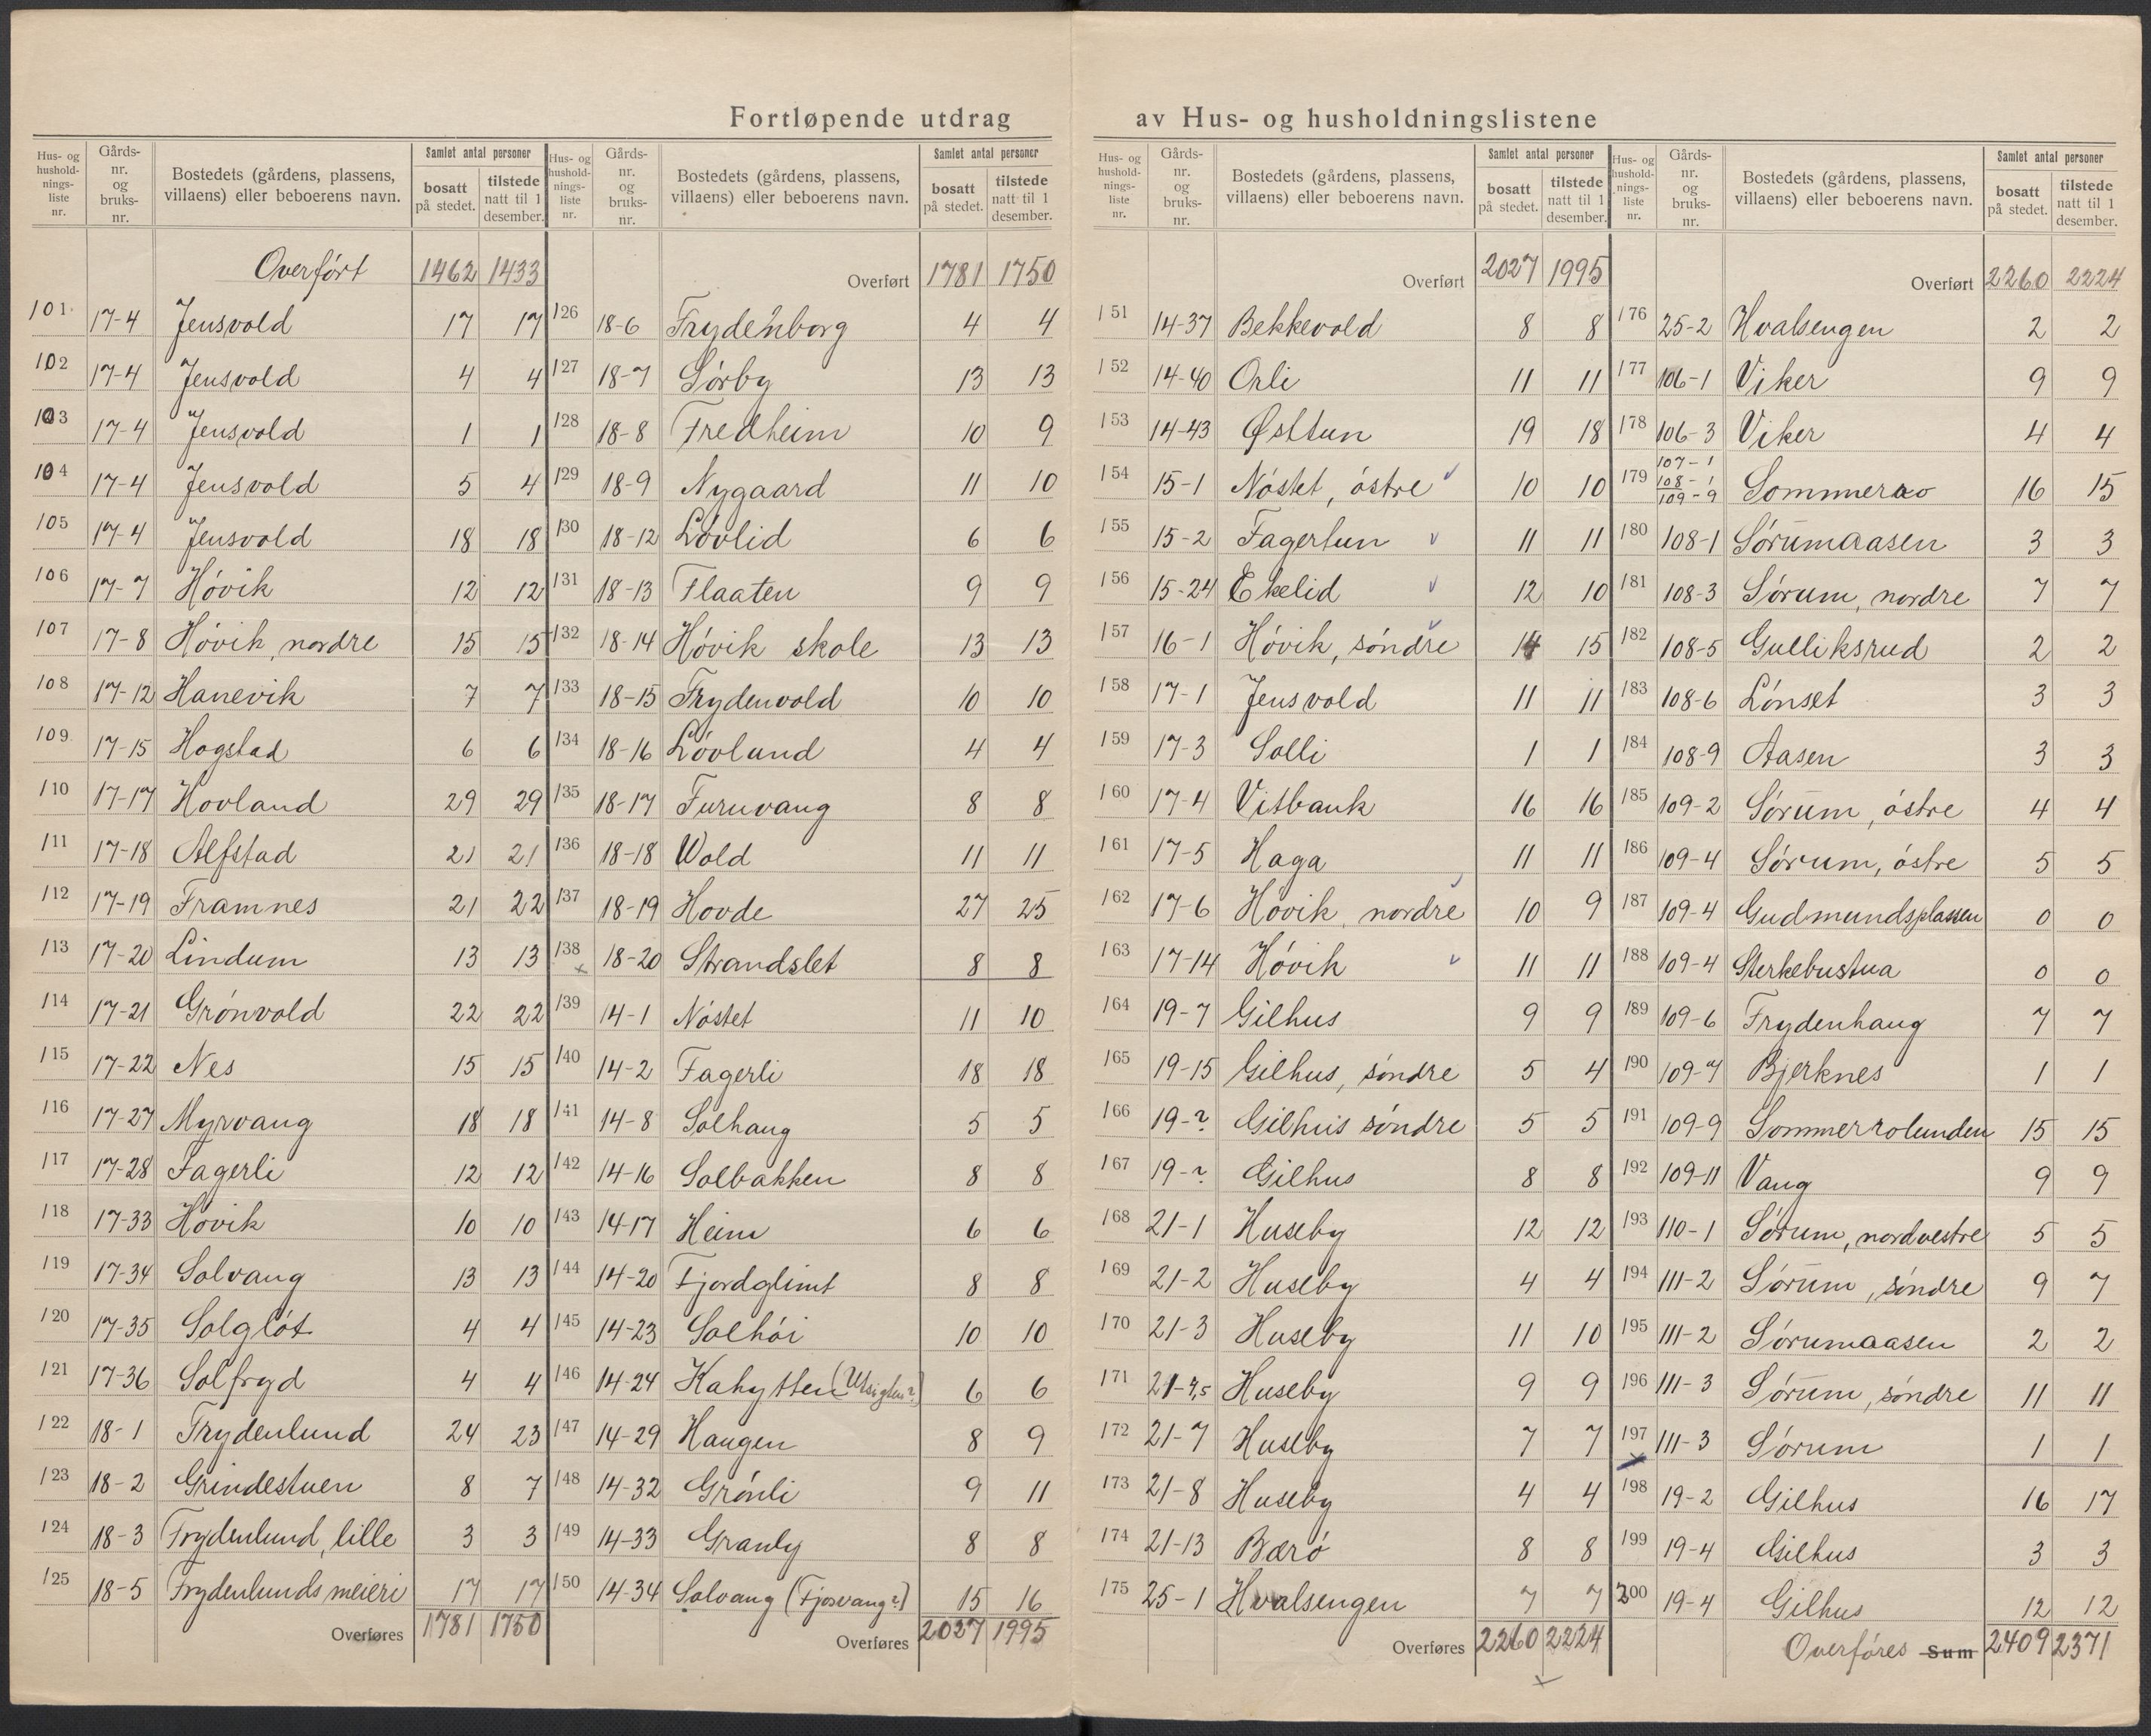 Fortløpende utdrag av Hus- og husholdningslistene
Hus- og hushold- nings- liste nr. | Gårds- nr. og bruks- nr. | Bostedets (gårdens, plassens, villaens) eller beboerens navn. | Samlet antal personer | bosatt på stedet. | tilstede natt til 1 desember.
Overført 1462 1433
101 17-4 Jensvold 17 17
102 17-4 Jensvold 4 4
103 17-4 Jensvold 1 1
104 17-4 Jensvold 5 4
105 17-4 Jensvold 18 18
106 17-7 Høvik 12 12
107 17-8 Høvik, nordre 15 15
108 17-12 Hanevik 7 7
109 17-15 Hogstad 6 6
110 17-17 Hovland 29 29
111 17-18 Alfstad 21 21
112 17-19 Framnes 21 22
113 17-20 Lindum 13 13
114 17-21 Grønvold 22 22
115 17-22 Nes 15 15
116 17-27 Myrvang 18 18
117 17-28 Fagerli 12 12
118 17-33 Høvik 10 10
119 17-34 Solvang 13 13
120 17-35 Solgløt 4 4
121 17-36 Solfryd 4 4
122 18-1 Frydenlund 24 23
123 18-2 Grindestuen 8 7
124 18-3 Frydenlund, lille 3 3
125 18-5 Frydenlunds meieri 17 17
Overføres 1781 1750
Hus- og hushold- nings- liste nr. | Gårds- nr. og bruks- nr. | Bostedets (gårdens, plassens, villaens) eller beboerens navn. | Samlet antal personer | bosatt på stedet. | tilstede natt til 1 desember.
Overført 1781 1750
126 18-6 Frydenborg 4 4
127 18-7 Sørby 13 13
128 18-8 Fredheim 10 9
129 18-9 Nygaard 11 10
130 18-12 Løvlid 6 6
131 18-13 Flaaten 9 9
132 18-14 Høvik skole 13 13
133 18-15 Frydenvold 10 10
134 18-16 Løvlund 4 4
135 18-17 Furuvang 8 8
136 18-18 Wold 11 11
137 18-19 Hovde 27 25
138 18-20 Strandslet 8 8
139 14-1 Nøstet 11 10
140 14-2 Fagerli 18 18
141 14-8 Solhaug 5 5
142 14-16 Solbakken 8 8
143 14-17 Heim 6 6
144 14-20 Fjordglimt 8 8
145 14-23 Solhøi 10 10
146 14-24 Kahytten (Utsigten?) 6 6
147 14-29 Haugen 8 9
148 14-32 Grønli 9 11
149 14-33 Granly 8 8
150 14-34 Solvang (Fjosvang?) 15 16
Overføres 2027 1995
Hus- og hushold- nings- liste nr. | Gårds- nr. og bruks- nr. | Bostedets (gårdens, plassens, villaens) eller beboerens navn. | Samlet antal personer | bosatt på stedet. | tilstede natt til 1 desember.
Overført 2027 1995
151 14-37 Bekkevold 8 8
152 14-40 Orli 11 11
153 14-43 Østtun 19 18
154 15-1 Nøstet, østre 10 10
155 15-2 Fagertun 11 11
156 15-24 Ekelid 12 10
157 16-1 Høvik, søndre 14 15
158 17-1 Jensvold 11 11
159 17-3 Solli 1 1
160 17-4 Vitbank 16 16
161 17-5 Haga 11 11
162 17-6 Høvik, nordre 10 9
163 17-14 Høvik 11 11
164 19-7 Gilhus 9 9
165 19-15 Gilhus, søndre 5 4
166 19-? Gilhus søndre 5 5
167 19-? Gilhus 8 8
168 21-1 Huseby 12 12
169 21-2 Huseby 4 4
170 21-3 Huseby 11 10
171 21-4,5 Huseby 9 9
172 21-7 Huseby 7 7
173 21-8 Huseby 4 4
174 21-13 Bærø 8 8
175 25-1 Hvalsengen 7 7
Overføres 2260 2224
Hus- og hushold- nings- liste nr. | Gårds- nr. og bruks- nr. | Bostedets (gårdens, plassens, villaens) eller beboerens navn. | Samlet antal personer | bosatt på stedet. | tilstede natt til 1 desember.
Overført 2260 2224
176 25-2 Hvalsengen 2 2
177 106-1 Viker 9 9
178 106-3 Viker 4 4
179 107-1 108-1 109-9 Sommerro 16 15
180 108-1 Sørumaasen 3 3
181 108-3 Sørum, nordre 7 7
182 108-5 Gulliksrud 2 2
183 108-6 Lønset 3 3
184 108-9 Aasen 3 3
185 109-2 Sørum, østre 4 4
186 109-4 Sørum, østre 5 5
187 109-4 Gudmundsplassen 0 0
188 109-4 Sterkebustua 0 0
189 109-6 Frydenhaug 7 7
190 109-7 Bjerknes 1 1
191 109-9 Sommerrolunden 15 15
192 109-11 Vang 9 9
193 110-1 Sørum, nordvestre 5 5
194 111-2 Sørum, søndre 9 7
195 111-2 Sørumaasen 2 2
196 111-3 Sørum, søndre 11 11
197 111-3 Sørum 1 1
198 19-2 Gilhus 16 17
199 19-4 Gilhus 3 3
200 19-4 Gilhus 12 12
Overføres Sum 2409 2371